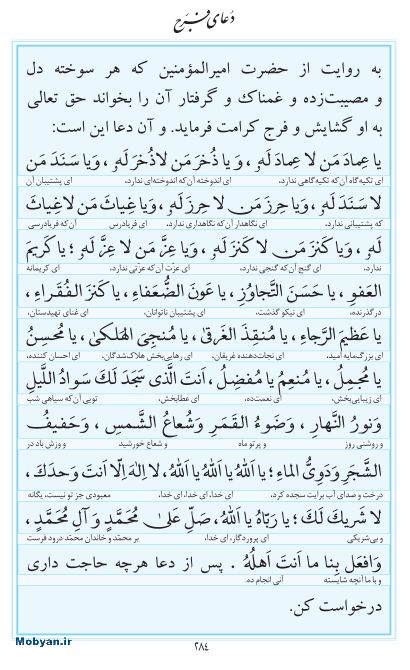 دعای فرج
به روایت از حضرت امیرالمؤمنین که هر سوخته دل
و مصیبت‌زده و غمناک و گرفتار آن را بخواند حق تعالی
به او گشایش و فرج کرامت فرماید. و آن دعا این است:
یا عِمادَ مَن لا عِمادَ لَهُ، وَیا ذُخرَ مَن لا ذُخرَ لَهُ، وَیا سَنَدَ مَن
ای تکیه‌گاه آن که تکیه‌گاهی ندارد، ای اندوخته آن که اندوخته‌ای ندارد، ای پشتیبان آن
لا سَنَدَ لَهُ، وَیا حِرزَ مَن لا حِرزَ لَهُ، وَیا غِیاثَ مَن لا غِیاثَ
که پشتیبانی ندارد، ای نگاهدار آن که نگاهداری ندارد، ای فریادرس آن که فریادرسی
لَهُ، وَیا کَنزَ مَن لا کَنزَ لَهُ، وَیا عِزَّ مَن لا عِزَّ لَهُ؛ یا کَریمَ
ندارد، ای گنج آن که گنجی ندارد، ای عزّت آن که عزتی ندارد، ای کریمانه
العَفوِ، یا حَسَنَ التَّجاوُزِ، یا عَونَ الضُّعَفاءِ، یا کَنزَ الفُقَراءِ،
درگذرنده، ای نیکو گذشت، ای پشتیبان ناتوانان، ای غنای تهیدستان،
یا عَظیمَ الرَّجاءِ، یا مُنقِذَ الغَرقیٰ، یا مُنجِیَ الهَلکیٰ، یا مُحسِنُ
ای بزرگ‌مایه امید، ای نجات‌دهنده غریقان، ای رهایی‌بخش هلاک‌شدگان، ای احسان کننده،
یا مُجمِلُ، یا مُنعِمُ یا مُفضِلُ، اَنتَ الَّذی سَجَدَ لَکَ سَوادُ اللَّیلِ
ای زیبایی‌بخش، ای نعمت‌ده، ای عطابخش، تویی آن که سیاهی شب
وَنورُ النَّهارِ، وَضَوءُ القَمَرِ وَشُعاعُ الشَّمسِ، وَحَفیفُ
و روشنی روز و پرتو ماه و شعاع خورشید و وزش باد در
الشَّجَرِ وَدَوِیُّ الماءِ؛ یا اَللهُ یا اَللهُ یا اَللهُ، لا اِلهَ اِلّا اَنتَ وَحدَکَ،
درخت و صدای آب برایت سجده کرد، ای خدا، ای خدا، ای خدا، معبودی جز تو نیست، یگانه
لا شَریکَ لَکَ؛ یا رَبّاهُ یا اَللهُ، صَلِّ عَلیٰ مُحَمَّدٍ وَ آلِ مُحَمَّدٍ،
و بی‌شریکی ای پروردگار، ای خدا، بر محمّد و خاندان محمّد درود فرست
وَافعَل بِنا ما اَنتَ اَهلُهُ. پس از دعا هرچه حاجت داری
و با ما آنچه شایسته آنی انجام ده.
درخواست کن.
۲۸۴
Mobyan.ir